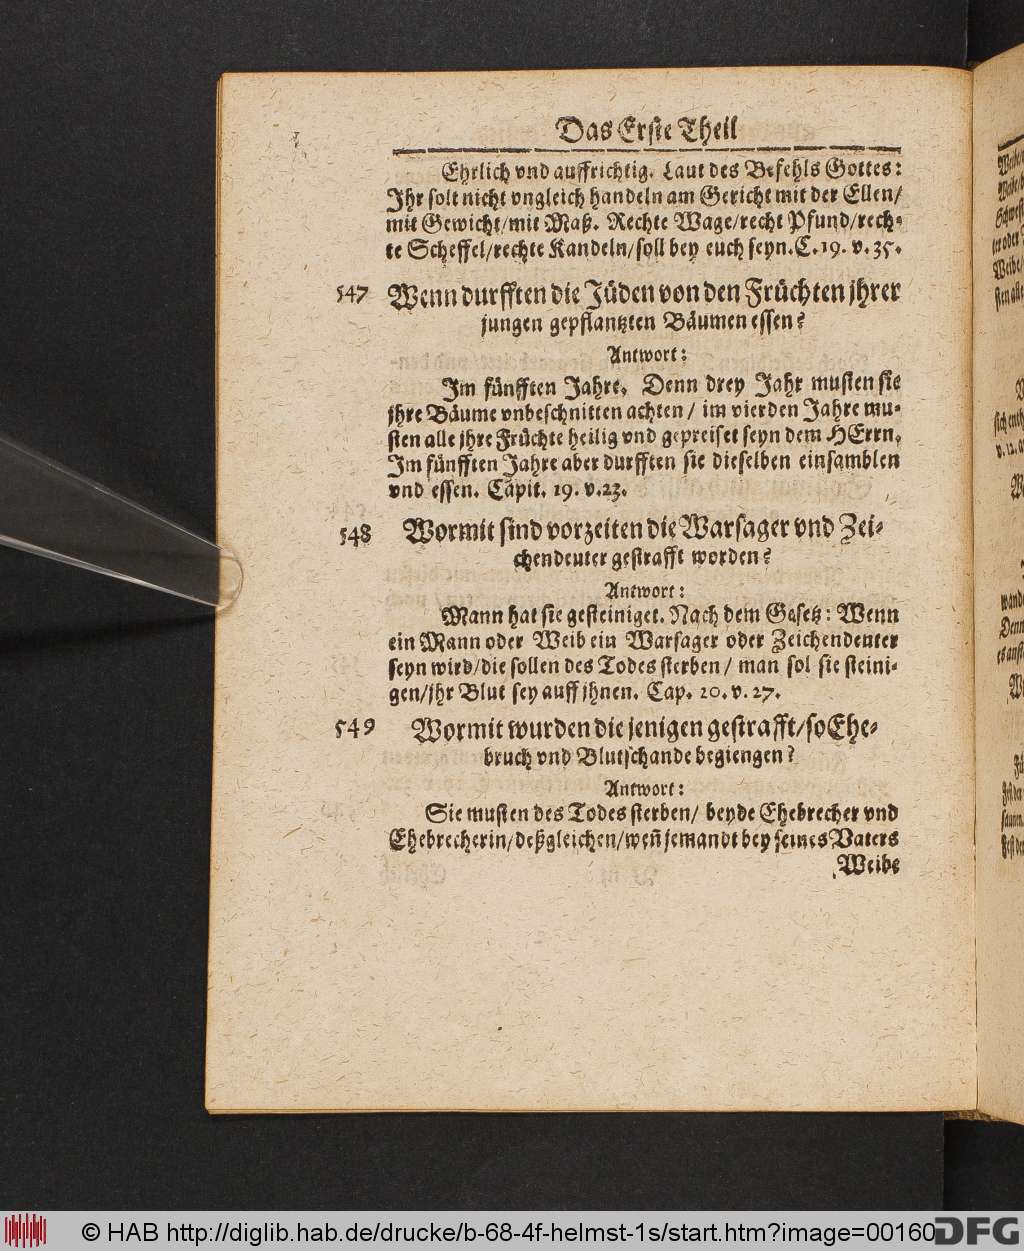 Das Erste Theil
Ehrlich vnd auffrichtig. Laut des Befehls Gottes:
Ihr solt nicht vngleich handeln am Gericht mit der Ellen/
mit Gewicht/mit Maß. Rechte Wage/recht Pfund/rech-
te Scheffel/rechte Kandeln/soll bey euch seyn.C.19. v.35.
547 Wenn durfften die Jüden von den Früchten jhrer
jungen gepflantzten Bäumen essen?
Antwort:
Im fünfften Jahre. Denn drey Jahr musten sie
jhre Bäume vnbeschnitten achten/ im vierden Jahre mu-
sten alle jhre Früchte heilig vnd gepreiset seyn dem HErrn.
Im fünfften Jahre aber durfften sie dieselben einsamblen
vnd essen. Capit. 19. v.23.
548 Wormit sind vorzeiten die Warsager vnd Zei-
chendeuter gestrafft worden?
Antwort:
Mann hat sie gesteiniget. Nach dem Gesetz: Wenn
ein Mann oder Weib ein Warsager oder Zeichendeuter
seyn wird/die sollen des Todes sterben/ man sol sie steini-
gen/jhr Blut sey auff jhnen. Cap. 20. v. 27.
549 Wormit wurden die jenigen gestrafft/so Ehe-
bruch vnd Blutschande begiengen?
Antwort:
Sie musten des Todes sterben/ beyde Ehebrecher vnd
Ehebrecherin/deßgleichen/weñ jemandt bey seines Vaters
Weibe
© HAB http://diglib.hab.de/drucke/b-68-4f-helmst-1s/start.htm?image=00160
DFG